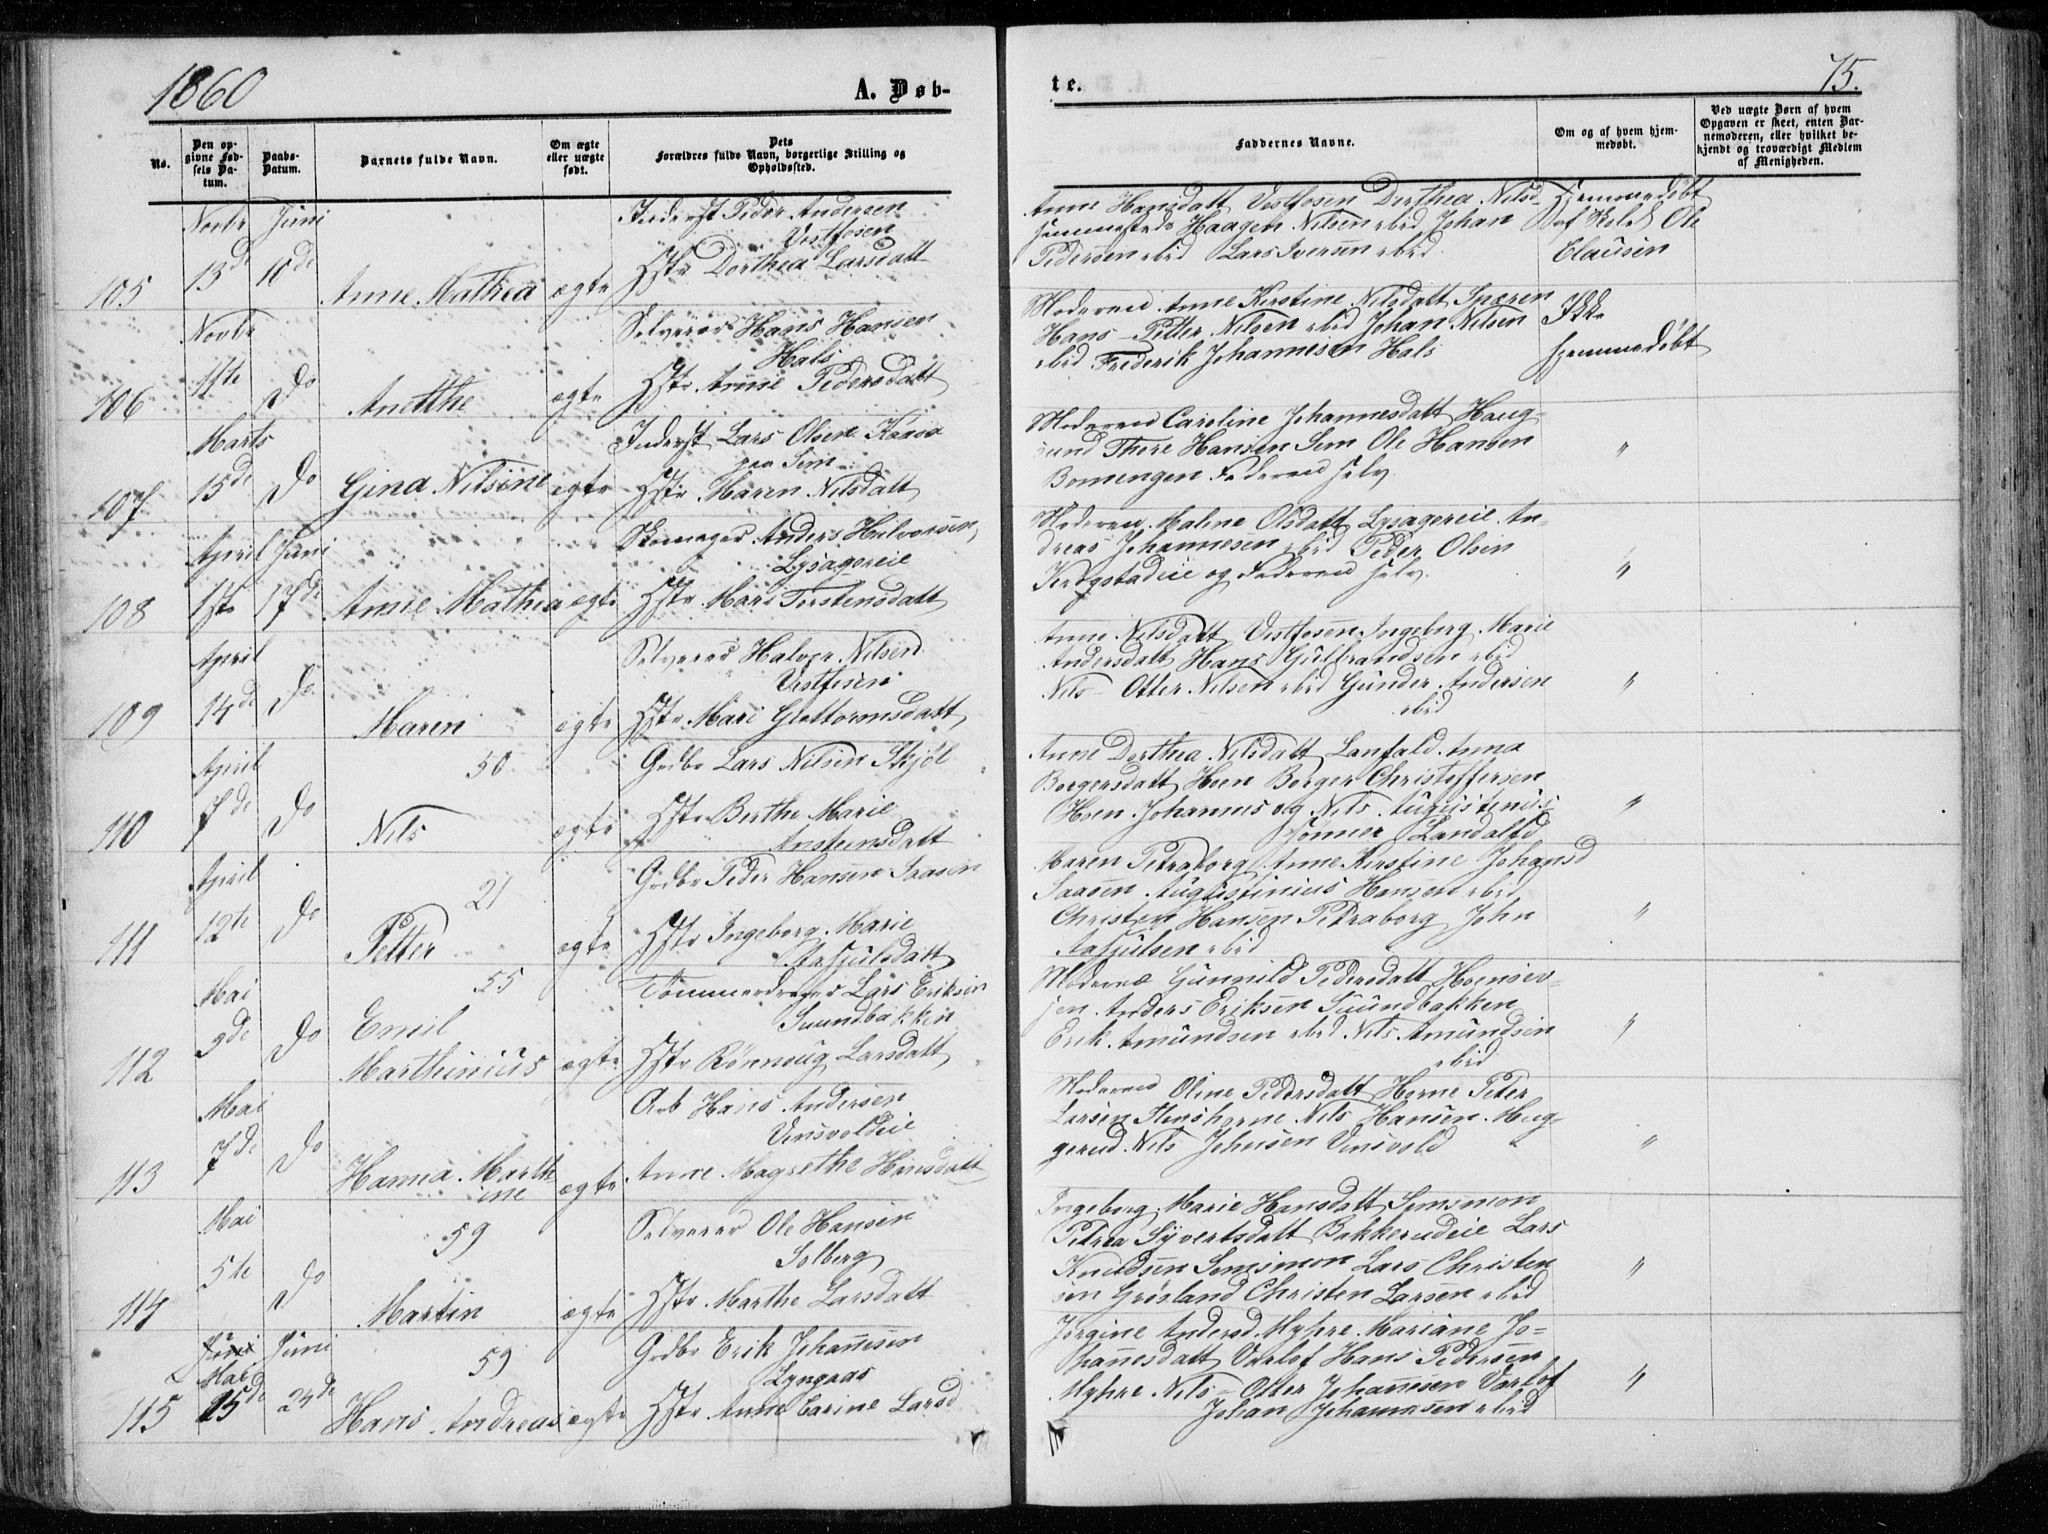 1860
A. Døb-
te.
75.
No.
Den op-
givne Fød-
sels Da-
tum.
Daabs-
Datum.
Barnets fulde Navn.
Om ægte
eller uægte
født.
Dets
Forældres fulde Navn, borgerlige Stilling og
Opholdssted.
Faddernes Navne.
Om og af hvem hjem-
medøbt.
Ved uægte Børn af hvem
Opgaven er skeet, enten Bar-
nemoderen, eller hvilket be-
kjendt og troværdigt Medlem
af Menigheden.
105
Novbr
13de
Juni
10de
Anne Mathea
ægte
Inderst Peder Andersen
Vestfosen
Hstr Dorthea Larsdatt
Anne Hansdatt Vestfosen Dorthea Nilsd
Haagen Nilsen ibid Johan
Pedersen ibid Lars Iversen ibid
Hjemmedøbt
af Ole
Clausen
106
Novbr
11te
Do
Anetthe
ægte
Selveier Hans Hansen
Hals
Hstr Anne Pedersdatt
Moderen Anne Kirstine Nilsdatt
Hans Petter Nilsen ibid Johan Nilsen
ibid Frederik Johannesen Hals
Ikke
hjemmedøbt
107
Marts
15de
Do
Gina Nilsine
ægte
Inderst Lars Olsen
paa Sem
Hstr Maren Nilsdatt
Moderen Caroline Johannesdatt Haug-
sund Thore Hansen Sem Ole Hansen
Bomengen Faderen selv
"
108
April
1ste
Juni
17de
Anne Mathea
ægte
Skomager Anders Halvorsen
Lysagereie
Hstr Mari Torstensdatt
Moderen Malene Olsdatt Lysagereie An-
dreas Johannesen ibid Peder Olsen
Krogstadeie og Faderen selv
"
109
April
14de
Do
Maren
ægte
Selveier Halvor Nilsen
Vestfosen
Hstr Mari Guttormsdatt
Anne Nilsdatt Vestfosen Ingeborg Marie
Andersdatt Hans Gulbrandsen ibid
Nils Otter Nilsen ibid Gunder Andersen
ibid
"
110
April
7de
Do
50
Nils
ægte
Gdbr Lars Nilsen Skjøl
Hstr Berthe Marie
Anstensdatt
Anne Dorthea Nilsdatt Anna
Borgersdatt Hoen Borger Christoffersen
Hoen Johannes og Nils Augustinius
sønner
"
111
April
12te
Do
21
Petter
ægte
Gdbr Peder Hansen Saasen
Hstr Ingeborg Marie
Asfjulsdatt
Maren Petraborg Anne Kirstine Johansd
Saasen Augustinius Hansen ibid
Christen Hansen Petraborg John
Asfjulsen ibid
"
112
Mai
9de
Do
55
Emil
Marthinius
ægte
Tømmerdreger Lars Eriksen
Suundbakken
Hstr Rønnaug Larsdatt
Moderen Gunnild Pedersdatt
Anders Eriksen Suundbakken
Erik Amundsen ibid Nils Amundsen
ibid
"
113
Mai
7de
Do
Hanna Marth-
ine
ægte
Arb Hans Andersen
Vinsvoldeie
Anne Magrethe Hansdatt
Moderen Oline Pedersdatt Horne Peter
Larsen Nils Hansen Mug-
gerud Nils Johnsen Vinsvold
"
114
Mai
5te
Do
59
Martin
ægte
Selveier Ole Hansen
Solberg
Hstr Marthe Larsdatt
Ingeborg Marie Hansdatt Semsmoen
Petrea Syvertsdatt Bakkerudeie Lars
Knudsen Semsmoen Lars Christen
sen Grøsland Christen Larsen ibid
"
115
Juni
Mai
15de
Juni
24de
59
Hans Andreas
ægte
Gdbr Erik Johannesen
Lyngaas
Hstr Anne Carine Larsd
Jørgine Andersd Myhre Mariane Jo-
hannesdatt Varlof Hans Pedersen
Myhre Nils Otter Johannesen Varlof
Johan Johannesen ibid
"